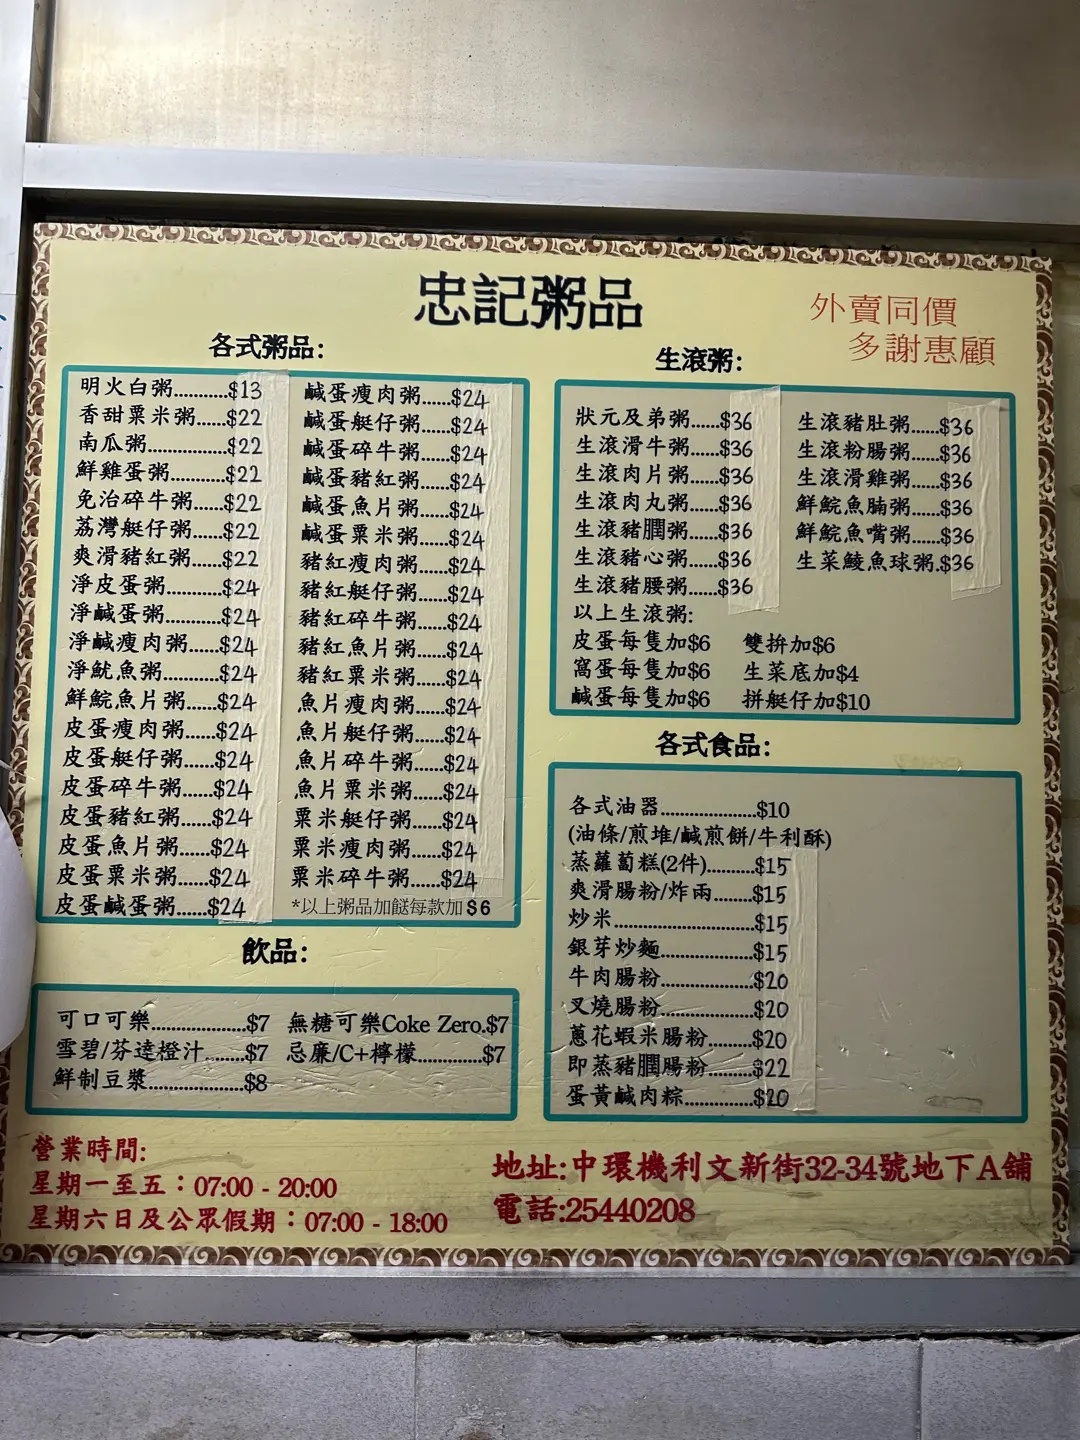 忠記粥品
外賣同價
多謝惠顧
各式粥品:
明火白粥...........$13
香甜粟米粥......$22
南瓜粥................$22
鮮雞蛋粥............$22
免治碎牛粥......$22
荔灣艇仔粥......$22
爽滑豬紅粥......$22
淨皮蛋粥............$24
淨鹹蛋粥............$24
淨鹹瘦肉粥......$24
淨魷魚粥............$24
鮮鯇魚片粥......$24
皮蛋瘦肉粥......$24
皮蛋艇仔粥......$24
皮蛋碎牛粥......$24
皮蛋豬紅粥......$24
皮蛋魚片粥......$24
皮蛋粟米粥......$24
皮蛋鹹蛋粥......$24
鹹蛋瘦肉粥......$24
鹹蛋艇仔粥......$24
鹹蛋碎牛粥......$24
鹹蛋豬紅粥......$24
鹹蛋魚片粥......$24
鹹蛋粟米粥......$24
豬紅瘦肉粥......$24
豬紅艇仔粥......$24
豬紅碎牛粥......$24
豬紅魚片粥......$24
豬紅粟米粥......$24
魚片瘦肉粥......$24
魚片艇仔粥......$24
魚片碎牛粥......$24
魚片粟米粥......$24
粟米艇仔粥......$24
粟米瘦肉粥......$24
粟米碎牛粥......$24
*以上粥品加餸每款加$6
生滾粥:
狀元及弟粥......$36
生滾滑牛粥......$36
生滾肉片粥......$36
生滾肉丸粥......$36
生滾豬膶粥......$36
生滾豬心粥......$36
生滾豬腰粥......$36
生滾豬肚粥......$36
生滾粉腸粥......$36
生滾滑雞粥......$36
鮮鯇魚腩粥......$36
鮮鯇魚嘴粥......$36
生菜鯪魚球粥.$36
以上生滾粥:
皮蛋每隻加$6 雙拚加$6
窩蛋每隻加$6 生菜底加$4
鹹蛋每隻加$6 拼艇仔加$10
各式食品:
各式油器....................$10
(油條/煎堆/鹹煎餅/牛利酥)
蒸蘿蔔糕(2件)..........$15
爽滑腸粉/炸兩........$15
炒米.............................$15
銀芽炒麵...................$15
牛肉腸粉...................$20
叉燒腸粉...................$20
蔥花蝦米腸粉.........$20
即蒸豬膶腸粉.........$22
蛋黃鹹肉粽..............$20
飲品:
可口可樂...................$7
雪碧/芬達橙汁........$7
鮮制豆漿...................$8
無糖可樂Coke Zero.$7
忌廉/C+檸檬.............$7
營業時間:
星期一至五：07:00 - 20:00
星期六日及公眾假期：07:00 - 18:00
地址:中環機利文新街32-34號地下A舖
電話:25440208